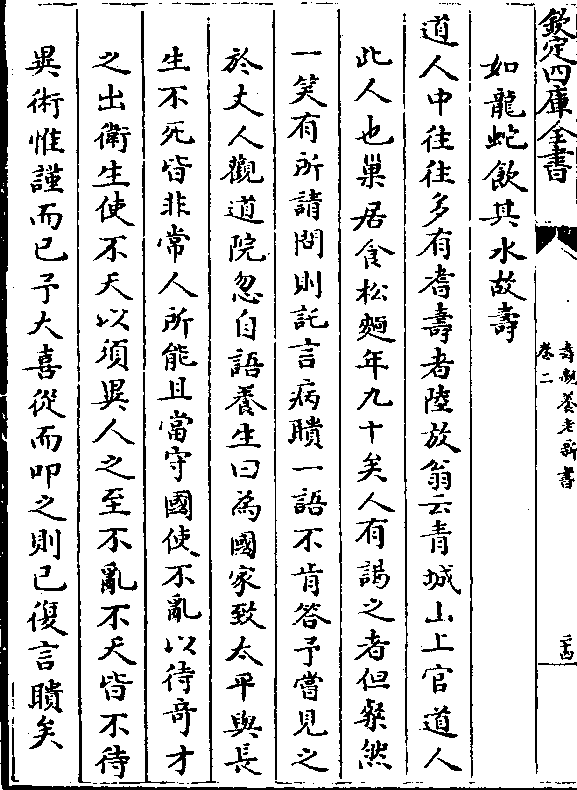 欽定四庫全書
壽親養老新書
卷二
二四
如龍蛇飲其水故壽
道人中往往多有耆壽者陸放翁云青城山上官道人
此人也巢居食松麪年九十矣人有謁之者但粲然
一笑有所請問則託言病聵一語不肯答予嘗見之
於丈人觀道院忽自語養生曰為國家致太平與長
生不死皆非常人所能且當守國使不亂以待奇才
之出衛生使不夭以須異人之至不亂不夭皆不待
異術惟謹而已予大喜從而叩之則已復言聵矣